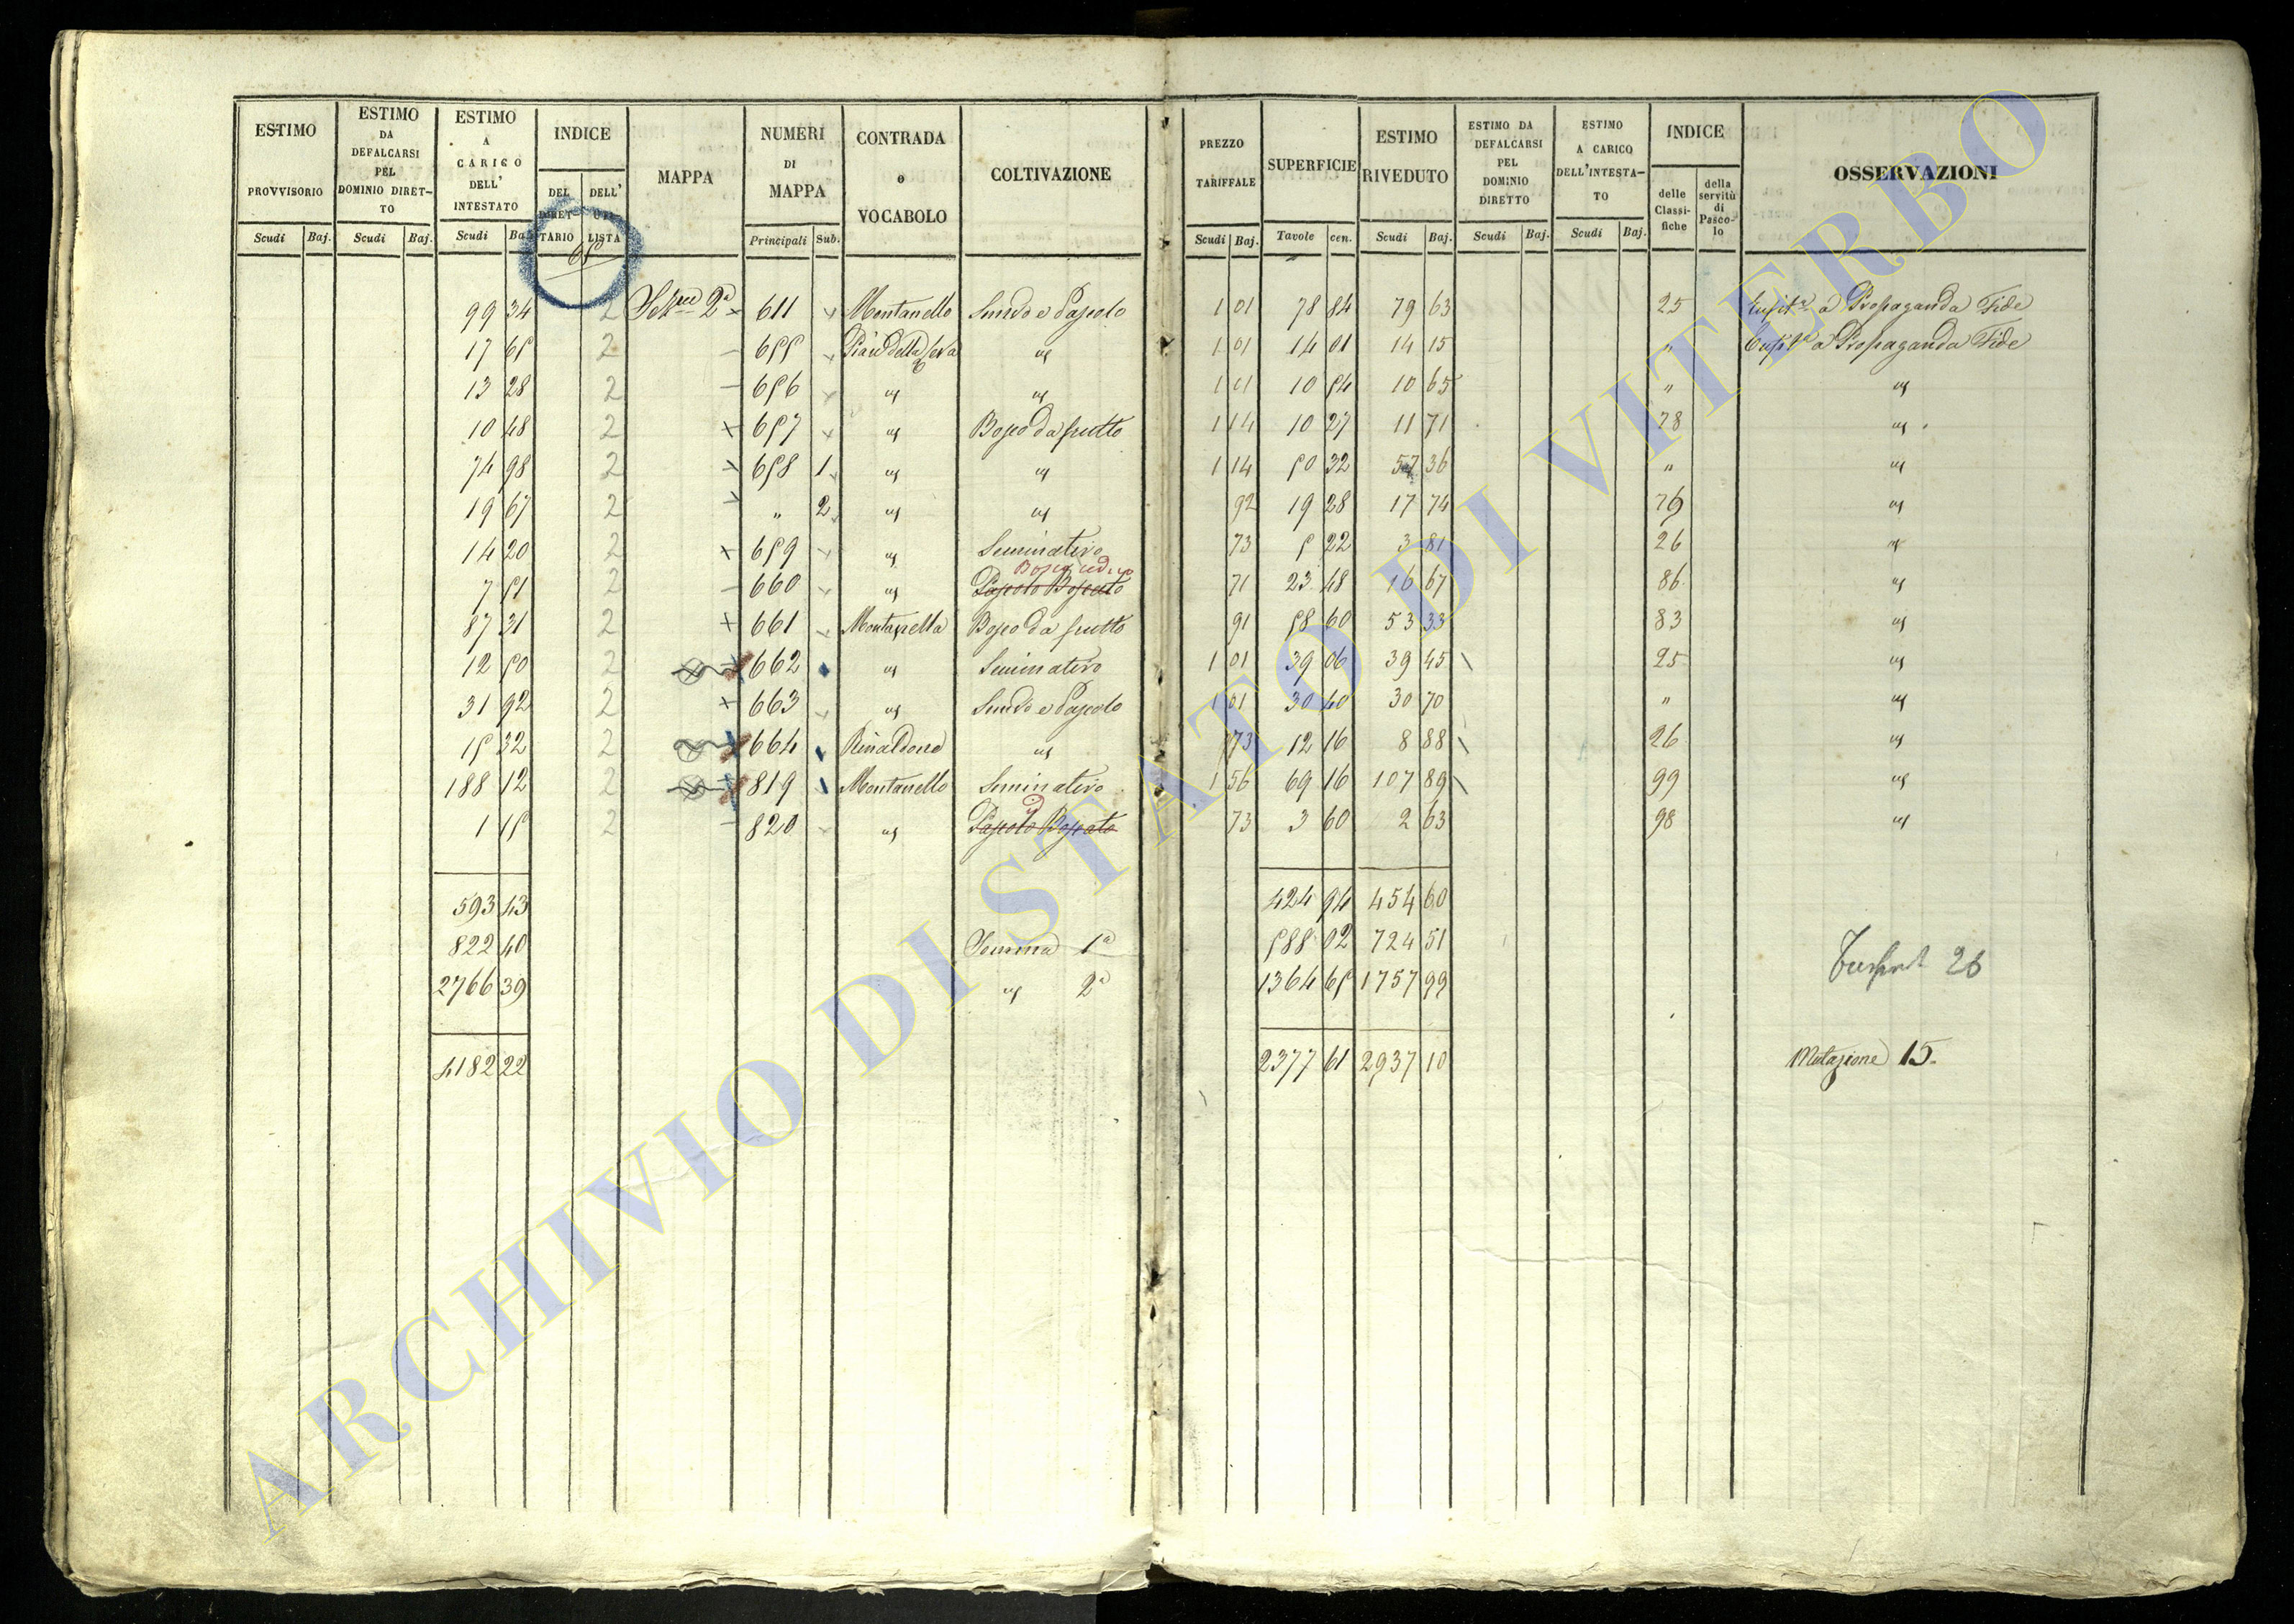 ESTIMO PROVVISORIO
ESTIMO DA DEFALCARSI PEL DOMINIO DIRET-TO
ESTIMO A CARICO DELL' INTESTATO
INDICE
DEL DIRET-TARIO
DELL' UTI-LISTA
MAPPA
NUMERI DI MAPPA
CONTRADA o VOCABOLO
COLTIVAZIONE
PREZZO TARIFFALE
SUPERFICIE
ESTIMO RIVEDUTO
ESTIMO DA DEFALCARSI PEL DOMINIO DIRETTO
ESTIMO A CARICO DELL'INTESTA-TO
INDICE
delle Classi-fiche
della servitù di Pasco-lo
OSSERVAZIONI
Scudi Baj. Scudi Baj. Scudi Ba Principali Sub. Scudi Baj. Tavole cen. Scudi Baj. Scudi Baj. Scudi Baj.
65
99 34 2 2a 611 Montanello e Pascolo 1 01 78 84 79 63 25 a Propaganda Fide
17 65 2 655 Pian della 1 01 14 01 14 15 " a Propaganda Fide
13 28 2 656 1 01 10 54 10 65 "
10 48 2 657 Bosco da frutto 1 14 10 27 11 71 78
74 98 2 658 1 1 14 50 32 57 36 "
19 67 2 " 2 92 19 28 17 74 79
14 20 2 659 Seminativo 73 5 22 3 81 26
Bosco ceduo
7 51 2 660 Pascolo Boscato 71 23 48 16 67 86
87 31 2 661 Montanello Bosco da frutto 91 58 60 53 33 83
12 50 2 662 Seminativo 1 01 39 06 39 45 25
31 92 2 663 e Pascolo 1 01 30 40 30 70 "
15 32 2 664 Rinaldone 73 12 16 8 88 26
188 12 2 819 Montanello Seminativo 1 56 69 16 107 89 99
1 15 2 820 Pascolo Boscato 73 3 60 2 63 98
593 43 424 94 454 60
822 40 Somma 1a 588 02 724 51
2766 39 2a 1364 65 1757 99
26
4182 22 2377 61 2937 10
Mutazione 15.
ARCHIVIO DI STATO DI VITERBO